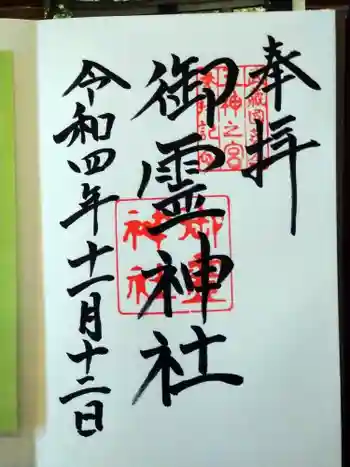 奉拝
御霊神社
御霊神社
令和四年十一月十二日